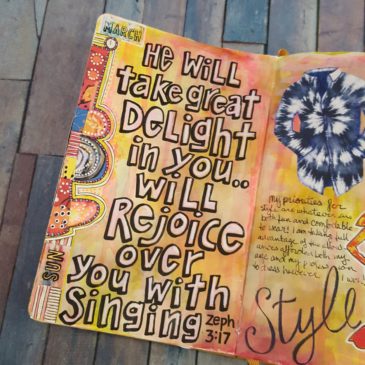 MARCH
He Will
take great
DeLight
in you..
WiLL
Rejoice
over
you with
Singing
zeph
3:17
SUN
My priorities for
style are whatever are
both fun and comfortable
to wear! I am taking full
advantage of the
afforded both my
age and my
to dress however
I
Style